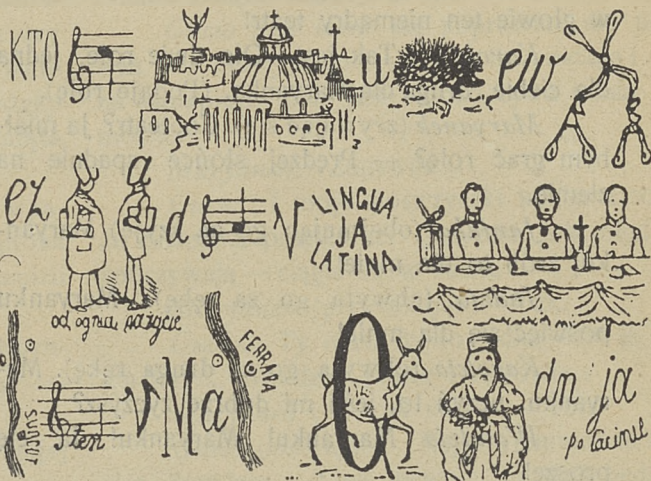 KTO u ew
ez a d V LINGUA JA LATINA
od ognia
SURGUT ten v Ma FERRARA O dn ja
po łacinie